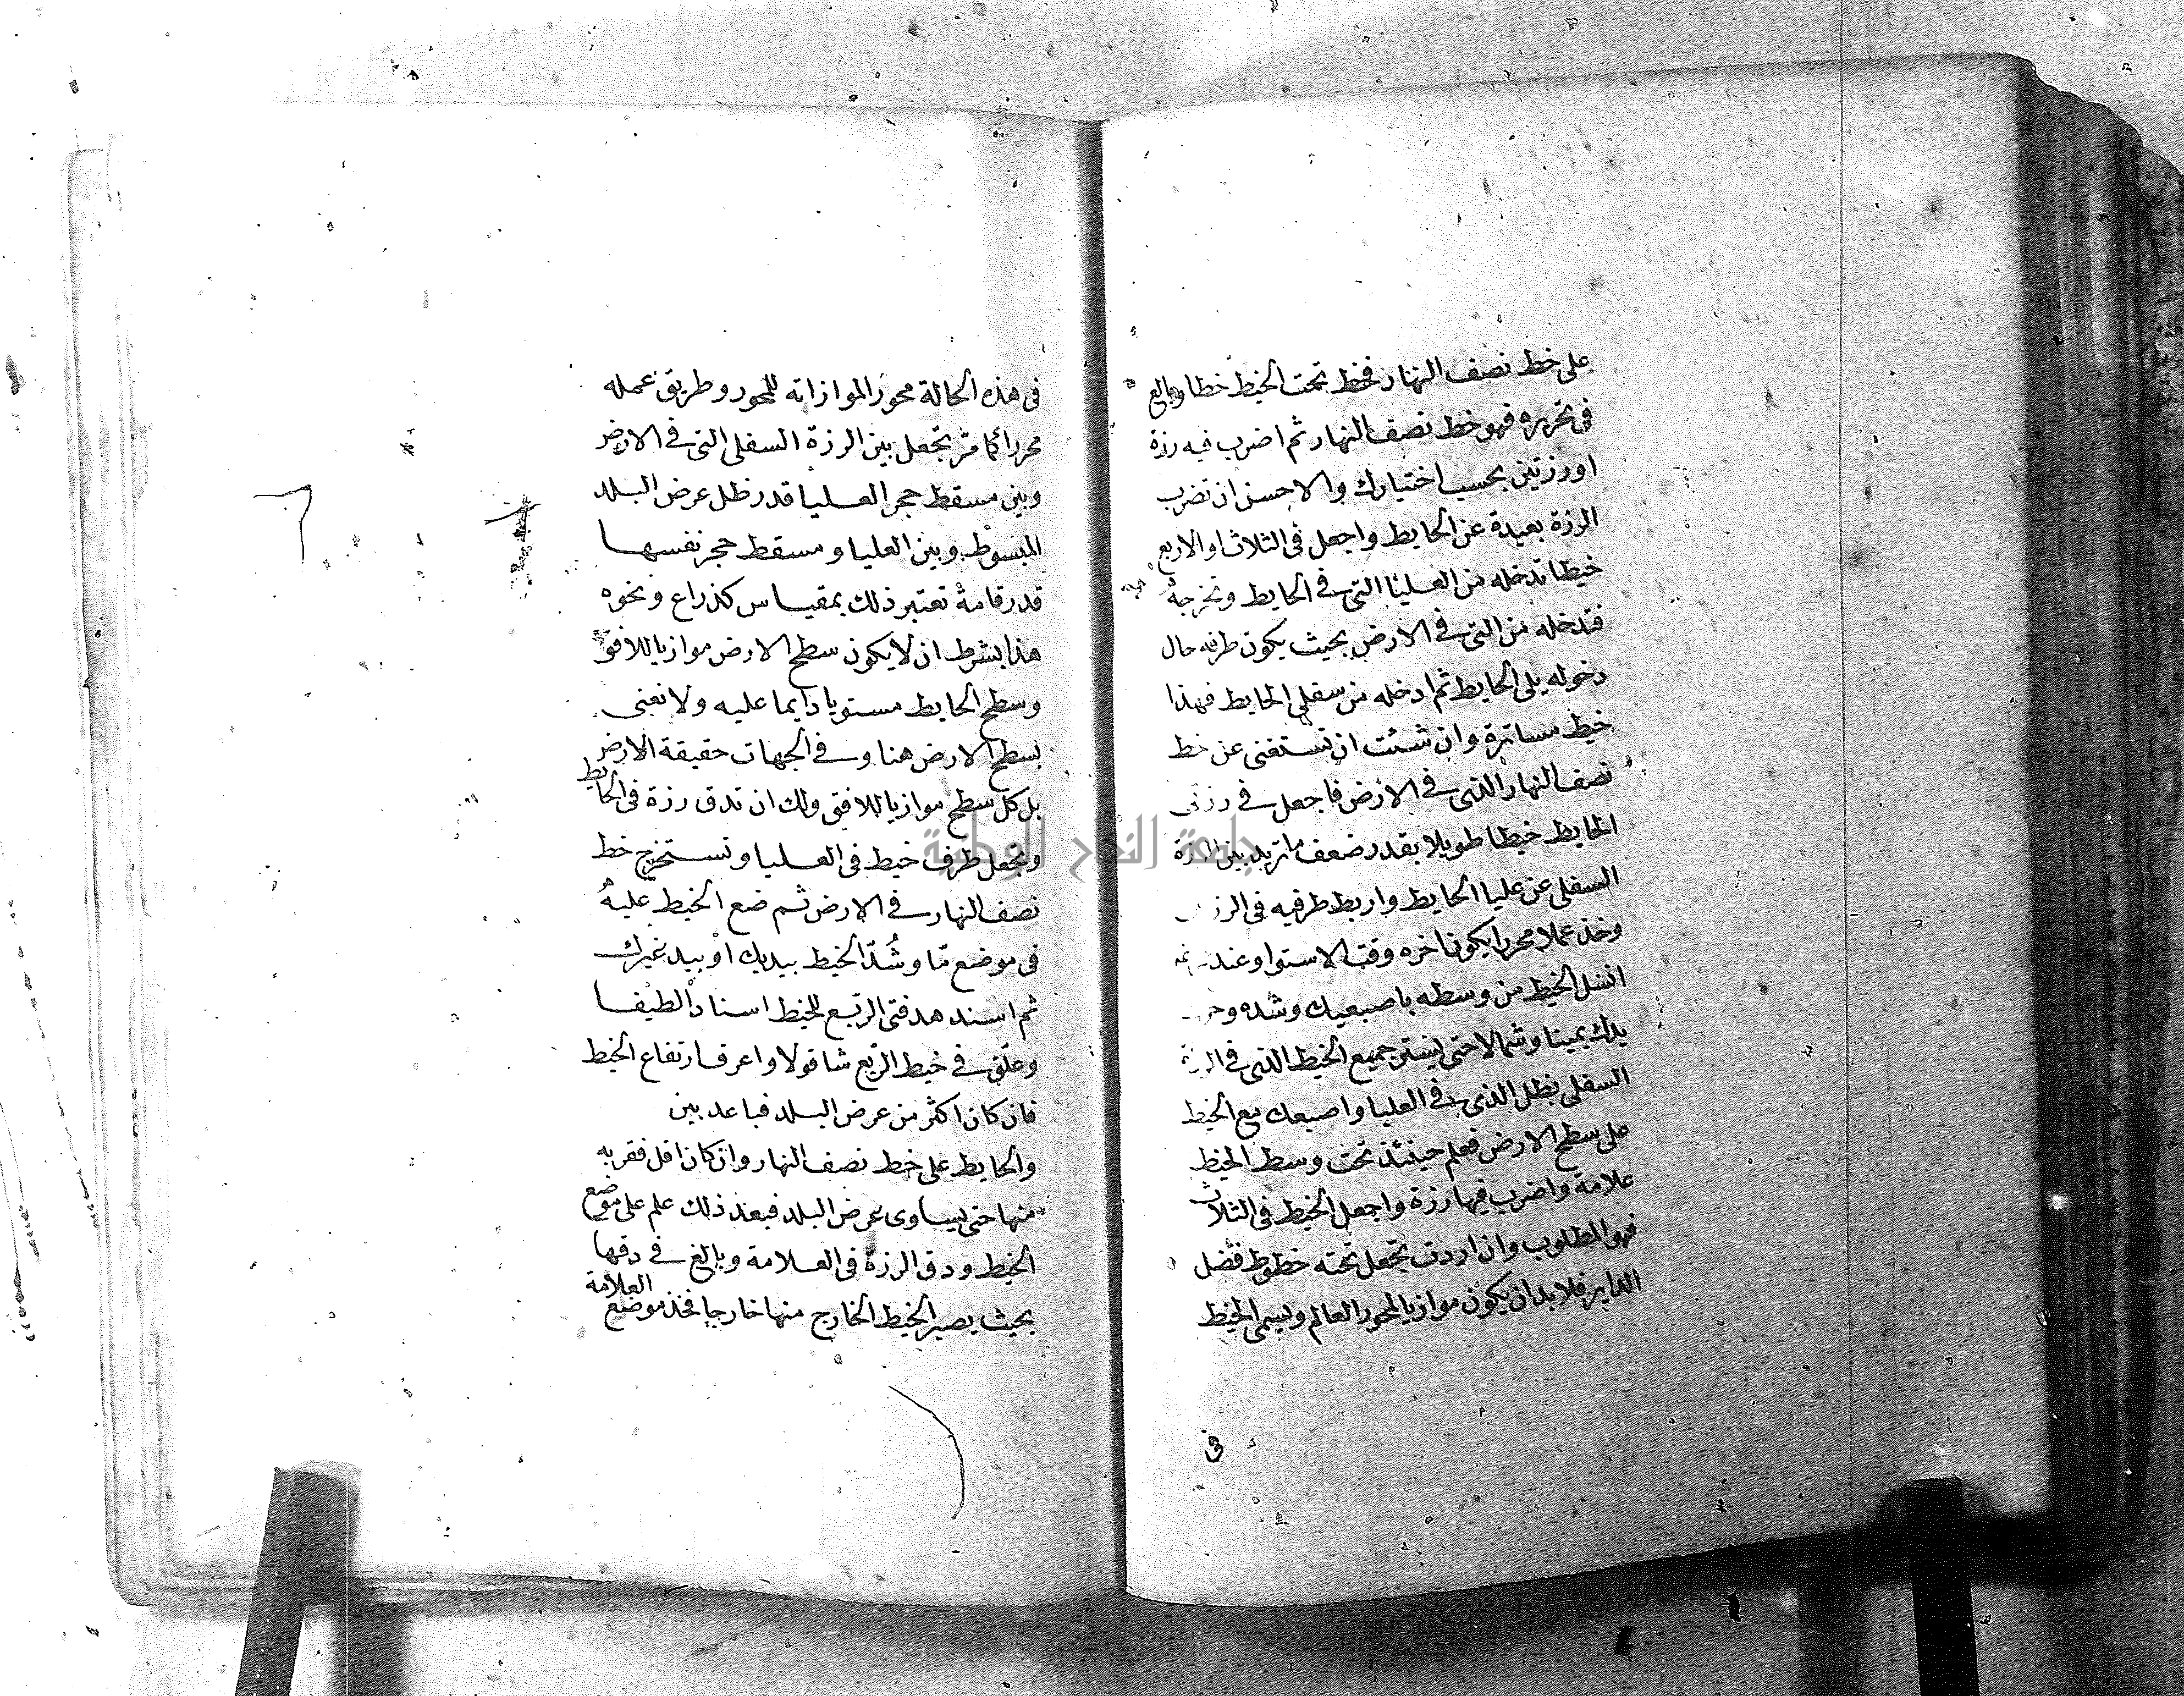 على خط نصف النهار فخط تحت الخيط خطا وبالغ
فى تحريره فهو خط نصف النهار ثم اضرب فيه رزة
او رزتين بحسب اختيارك والاحسن ان تضرب
الرزة بعيدة عن الحايط واجعل فى الثلاث او الاربع
خيطا تدخله من العليا التى فى الحايط وتخرجه
فتدخله من التى فى الارض بحيث يكون طرفه حال
دخوله يلى الحايط ثم ادخله من سفلى الحايط فهذا
خيط مساترة وان شئت ان تستغنى عن خط
نصف النهار الذى فى الارض فاجعل فى رزتى
الحايط خيطا طويلا بقدر ضعف ما تريد بين الرزة
السفلى عن عليا الحايط واربط طرفيه فى
وخذ عملا محررا يكون اخره وقت الاستوا وعند
الخيط من وسطه باصبعيك وشده
يدك يمينا وشمالا حتى يستتر جميع الخيط الذى فى
السفلى بظل الذى فى العليا واصبعك مع الخيط
على سطح الارض فعلم حينئذ تحت وسط الخيط
علامة واضرب فيها رزة واجعل الخيط فى الثلاث
فهو المطلوب وان اردت تجعل تحته خطوط فضل
الداير فلا بد ان يكون موازيا لمحور العالم ويسمى الخيط
فى
فى هذه الحالة محور الموازاته للمحور وطريق عمله
محررا كما مر تجعل بين الرزة السفلى التى فى الارض
وبين مسقط حجر العليا قدر ظل عرض البلد
المبسوط وبين العليا ومسقط حجر نفسها
قدر قامة تعتبر ذلك بمقياس كذراع ونحوه
هذا بشرط ان لا يكون سطح الارض موازيا للافق
وسطح الحايط مستويا دايما عليه ولا نعنى
بسطح الارض هنا وفى الجهات حقيقة الارض
بل كل سطح موازيا للافق ولك ان تدق رزة فى الحايط
وتجعل طرف خيط فى العليا وتستخرج خط
نصف النهار فى الارض ثم ضع الخيط عليه
فى موضع ما وشد الخيط بيديك او بيد غيرك
ثم اسند هدفتى الربع للخيط اسنادا لطيفا
وعلق فى خيط الربع شاقولا واعرف ارتفاع الخيط
فان كان اكثر من عرض البلد فباعد بين
والحايط على خط نصف النهار وان كان اقل فقربه
منها حتى يساوى عرض البلد فبعد ذلك علم على موضع
الخيط ودق الرزة فى العلامة وبالغ فى دقها
بحيث يصير الخيط الخارج منها خارجا فخذ موضع العلامة
جامعة النجاح الوطنية